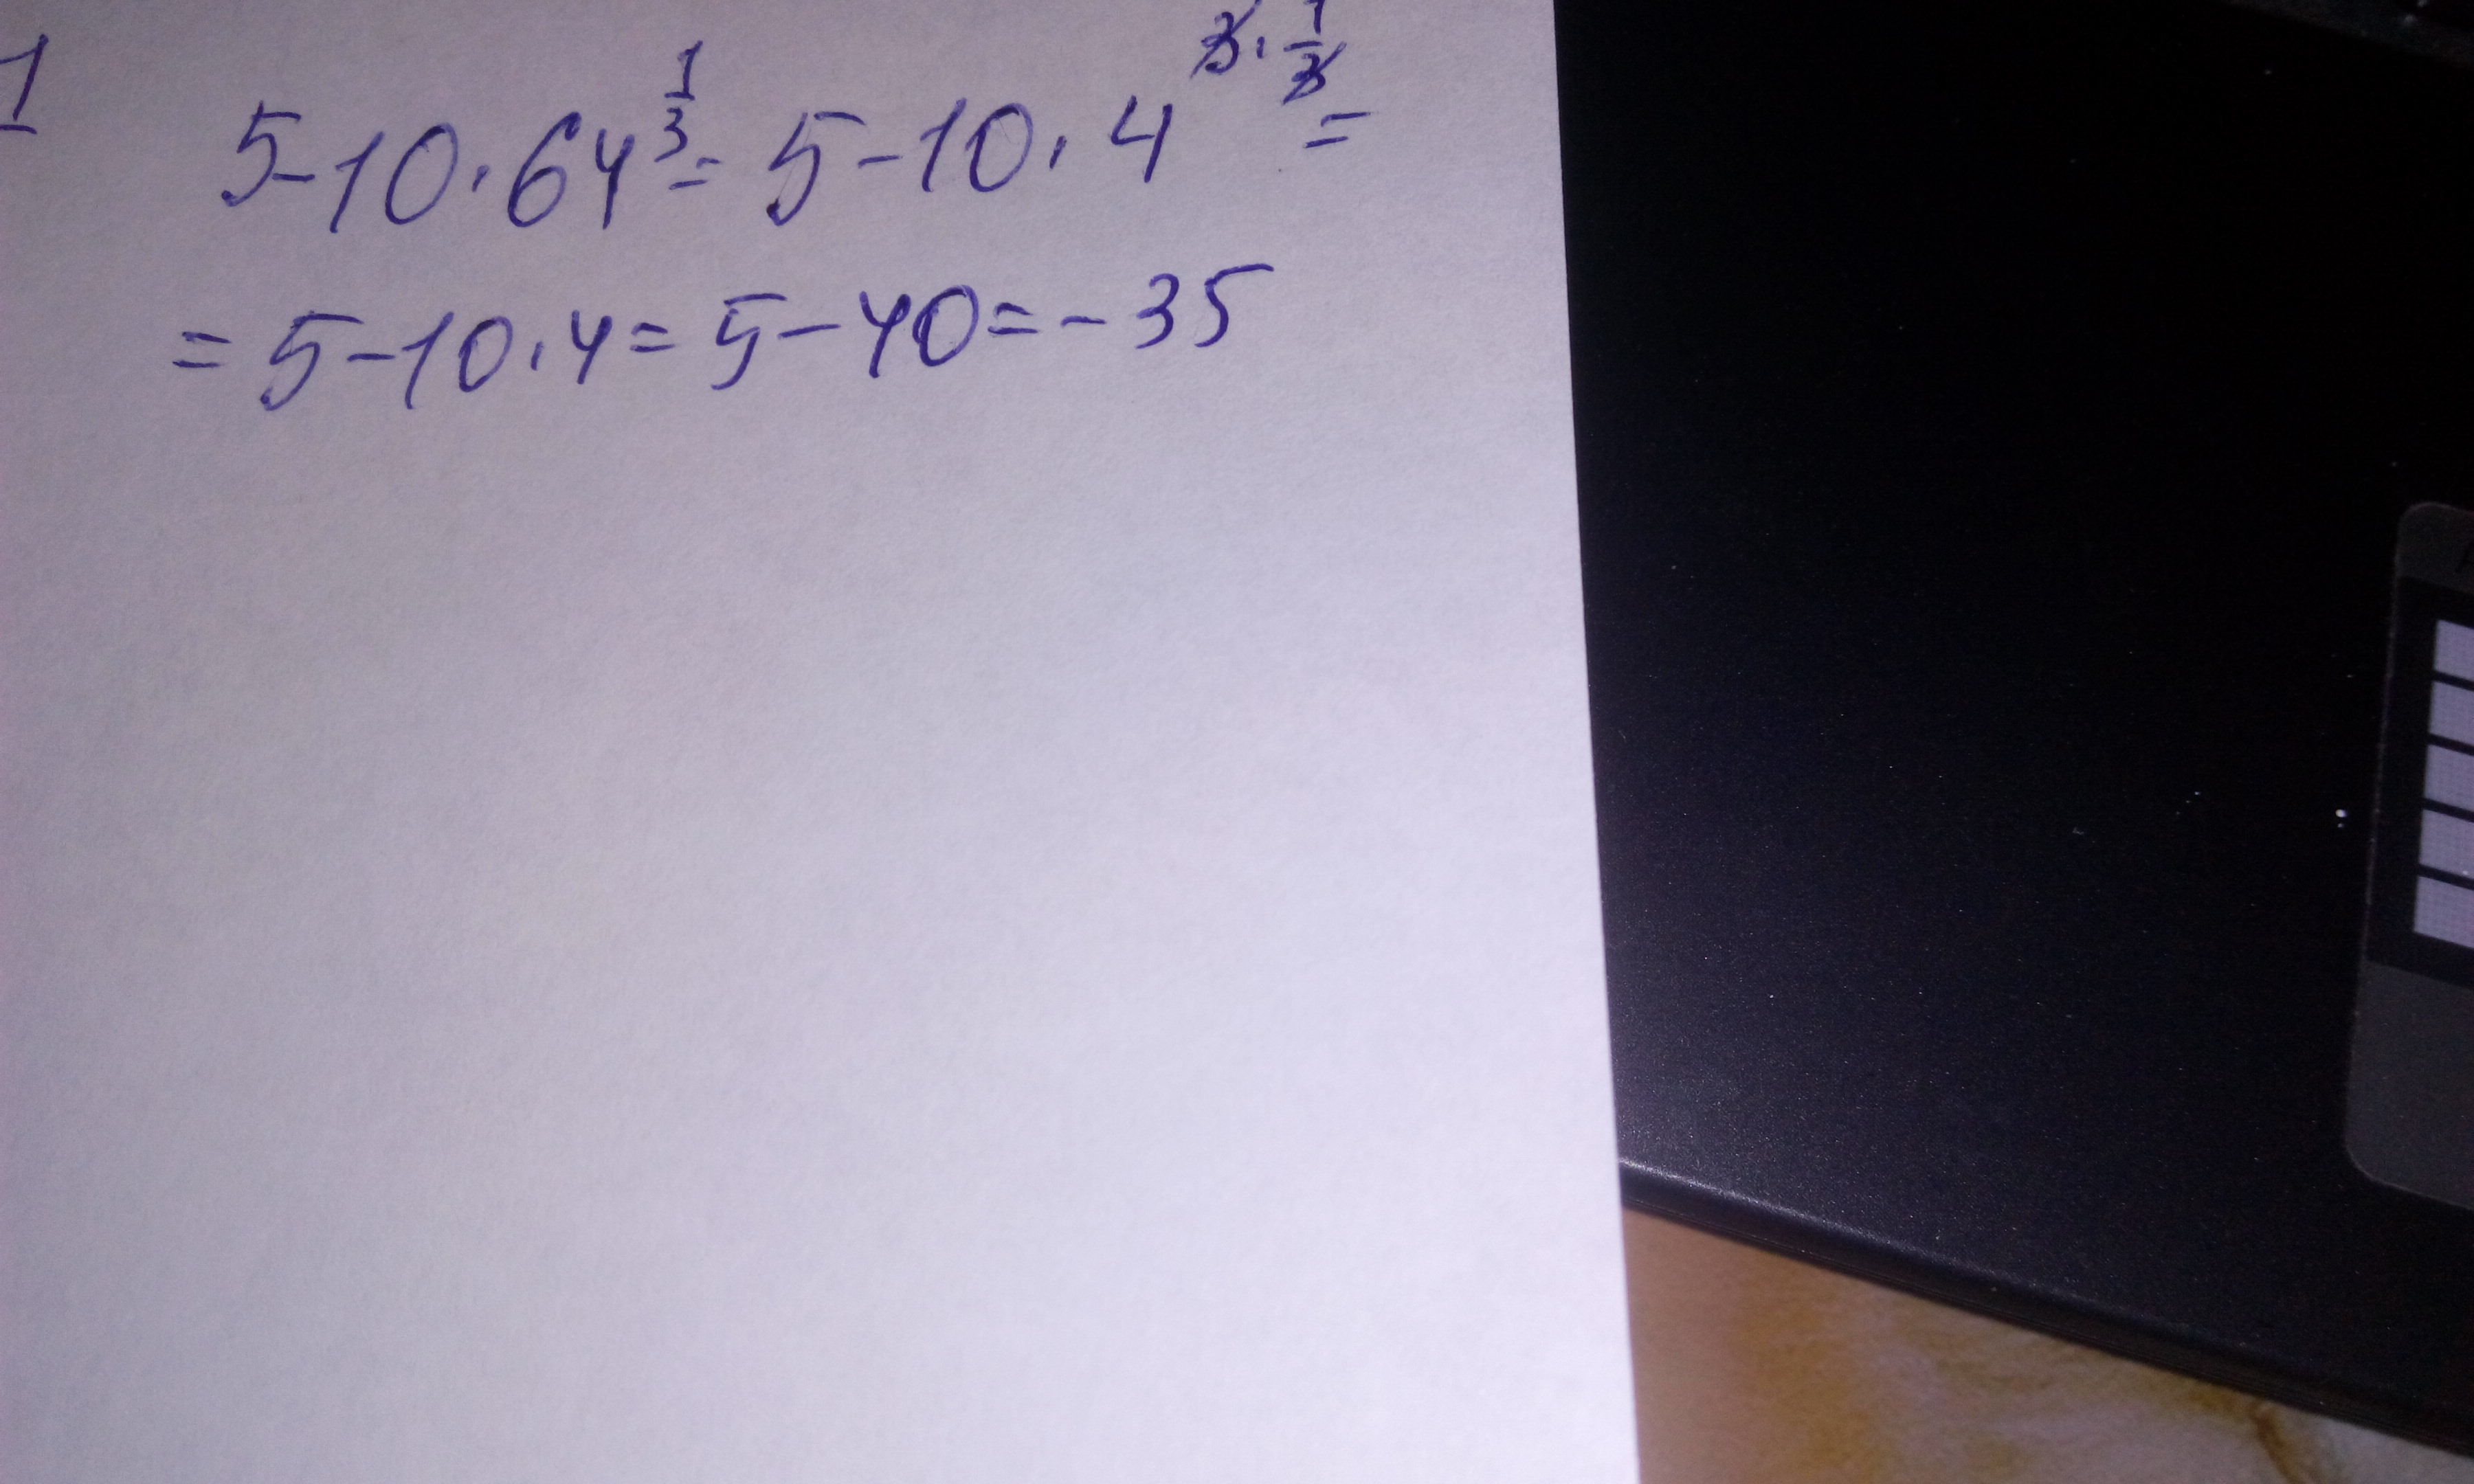 1 5-10·64^(1/3) = 5-10·4^(3·1/3) =
= 5-10·4 = 5-40 = -35